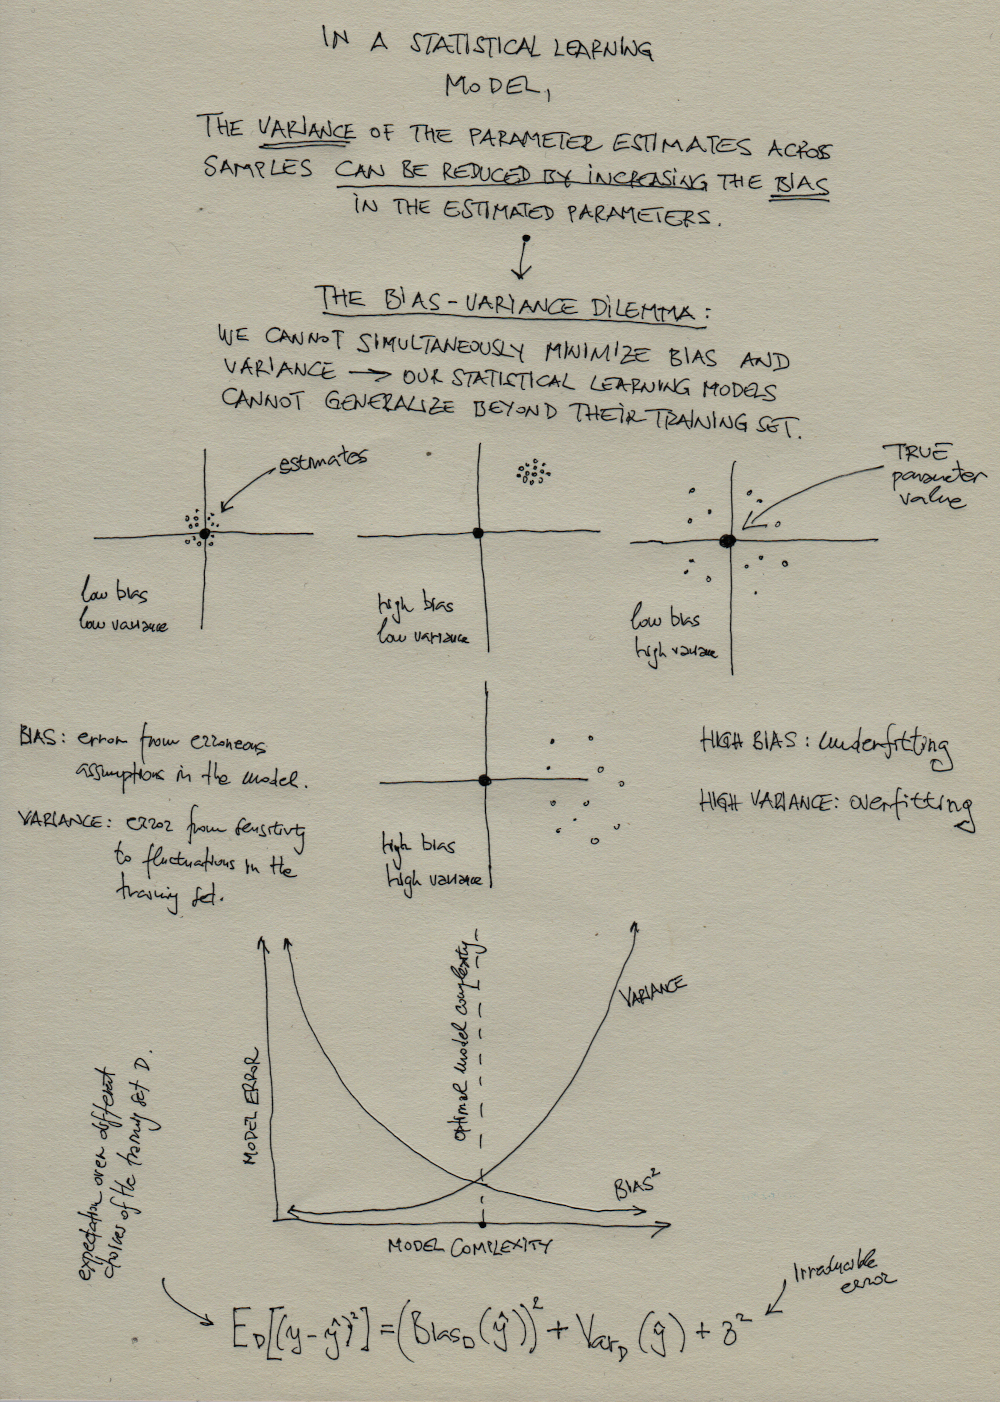 IN A STATISTICAL LEARNING
MODEL,
THE VARIANCE OF THE PARAMETER ESTIMATES ACROSS
SAMPLES CAN BE REDUCED BY INCREASING THE BIAS
IN THE ESTIMATED PARAMETERS.
THE BIAS-VARIANCE DILEMMA:
WE CANNOT SIMULTANEOUSLY MINIMIZE BIAS AND
VARIANCE → OUR STATISTICAL LEARNING MODELS
CANNOT GENERALIZE BEYOND THEIR TRAINING SET.
estimates
TRUE
parameter
value
low bias
low variance
high bias
low variance
low bias
high variance
BIAS: error from erroneous
assumptions in the model.
VARIANCE: error from sensitivity
to fluctuations in the
training set.
high bias
high variance
HIGH BIAS: underfitting
HIGH VARIANCE: overfitting
MODEL ERROR
optimal model complexity
VARIANCE
BIAS²
MODEL COMPLEXITY
expectation over different
choices of the training set D.
Irreducible
error
E_D[(y-ŷ)²] = (Bias_D(ŷ))² + Var_D(ŷ) + σ²